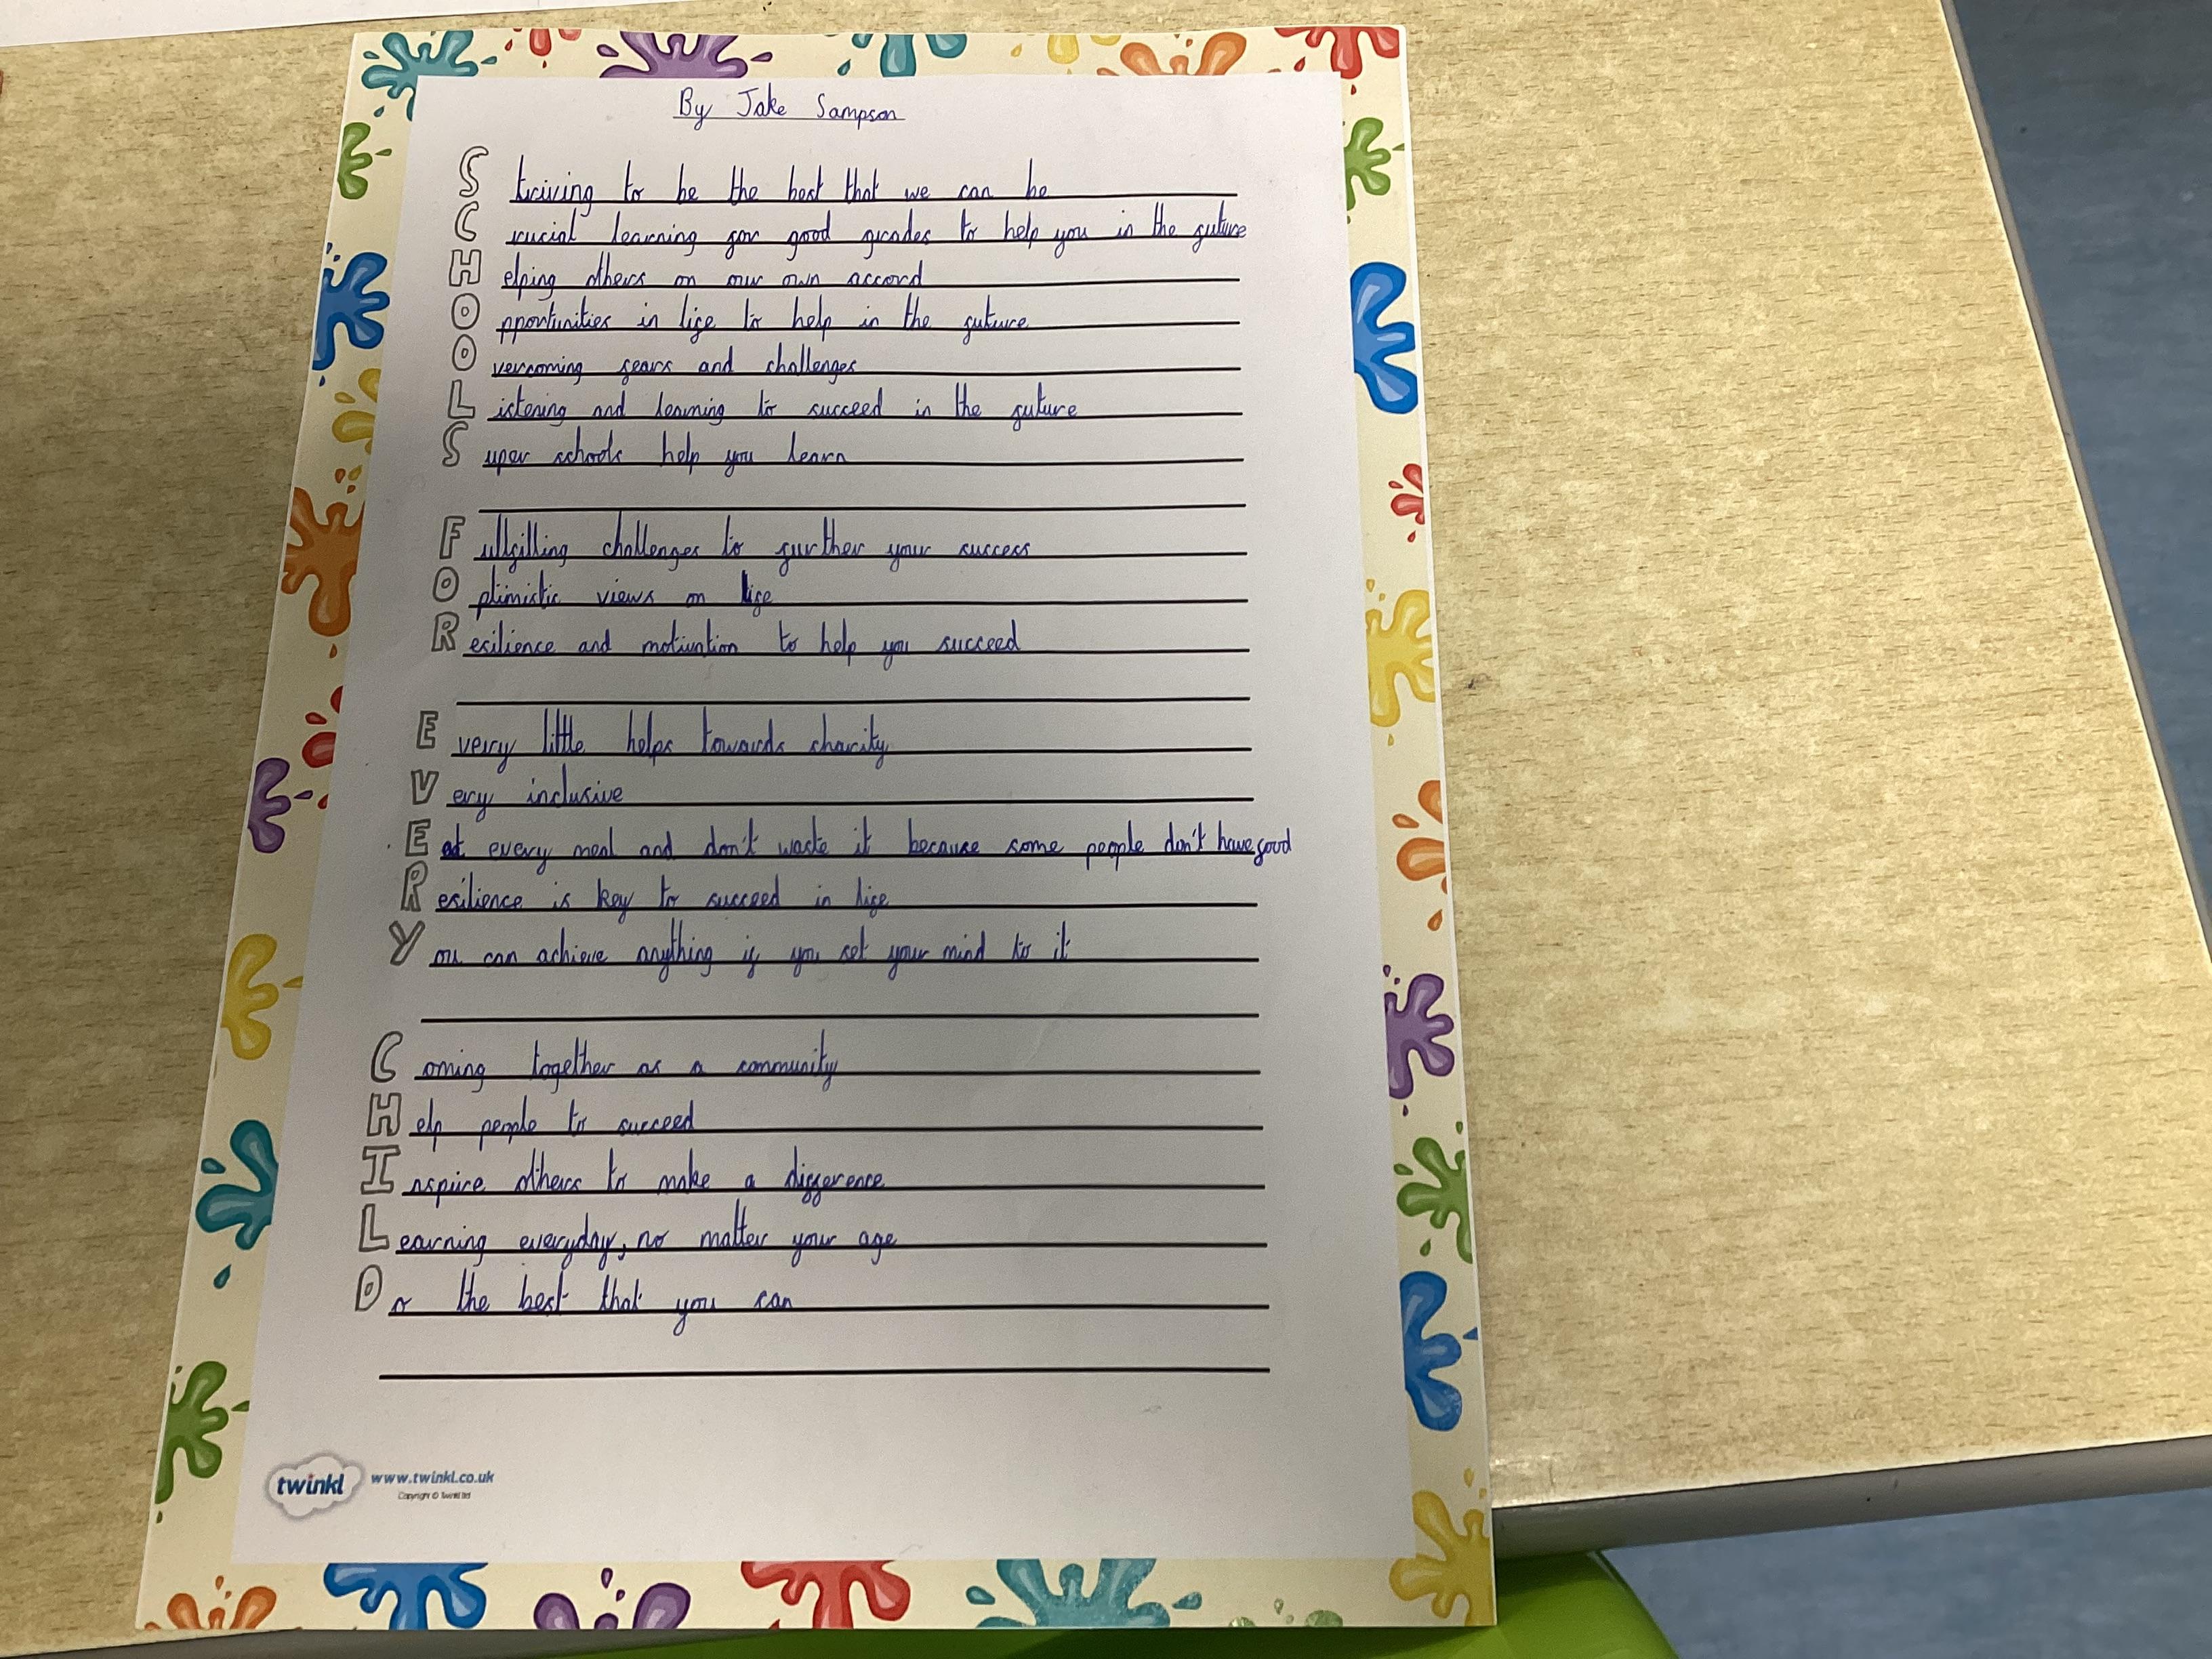 By Jake Sampson
Striving to be the best that we can be
Crucial learning for good grades to help you in the future
Helping others on our own accord
Opportunities in life to help in the future
Overcoming fears and challenges
Listening and learning to succeed in the future
Super schools help you learn
Fullfilling challenges to further your success
Optimistic views on life
Resilience and motivation to help you succeed
Every little helps towards charity
Very inclusive
Eat every meal and don't waste it because some people don't have food
Resilience is key to succeed in life
You can achieve anything if you set your mind to it
Coming together as a community
Help people to succeed
Inspire others to make a difference
Learning everyday, no matter your age
Do the best that you can
twinkl www.twinkl.co.uk
Copyright © Twinkl Ltd